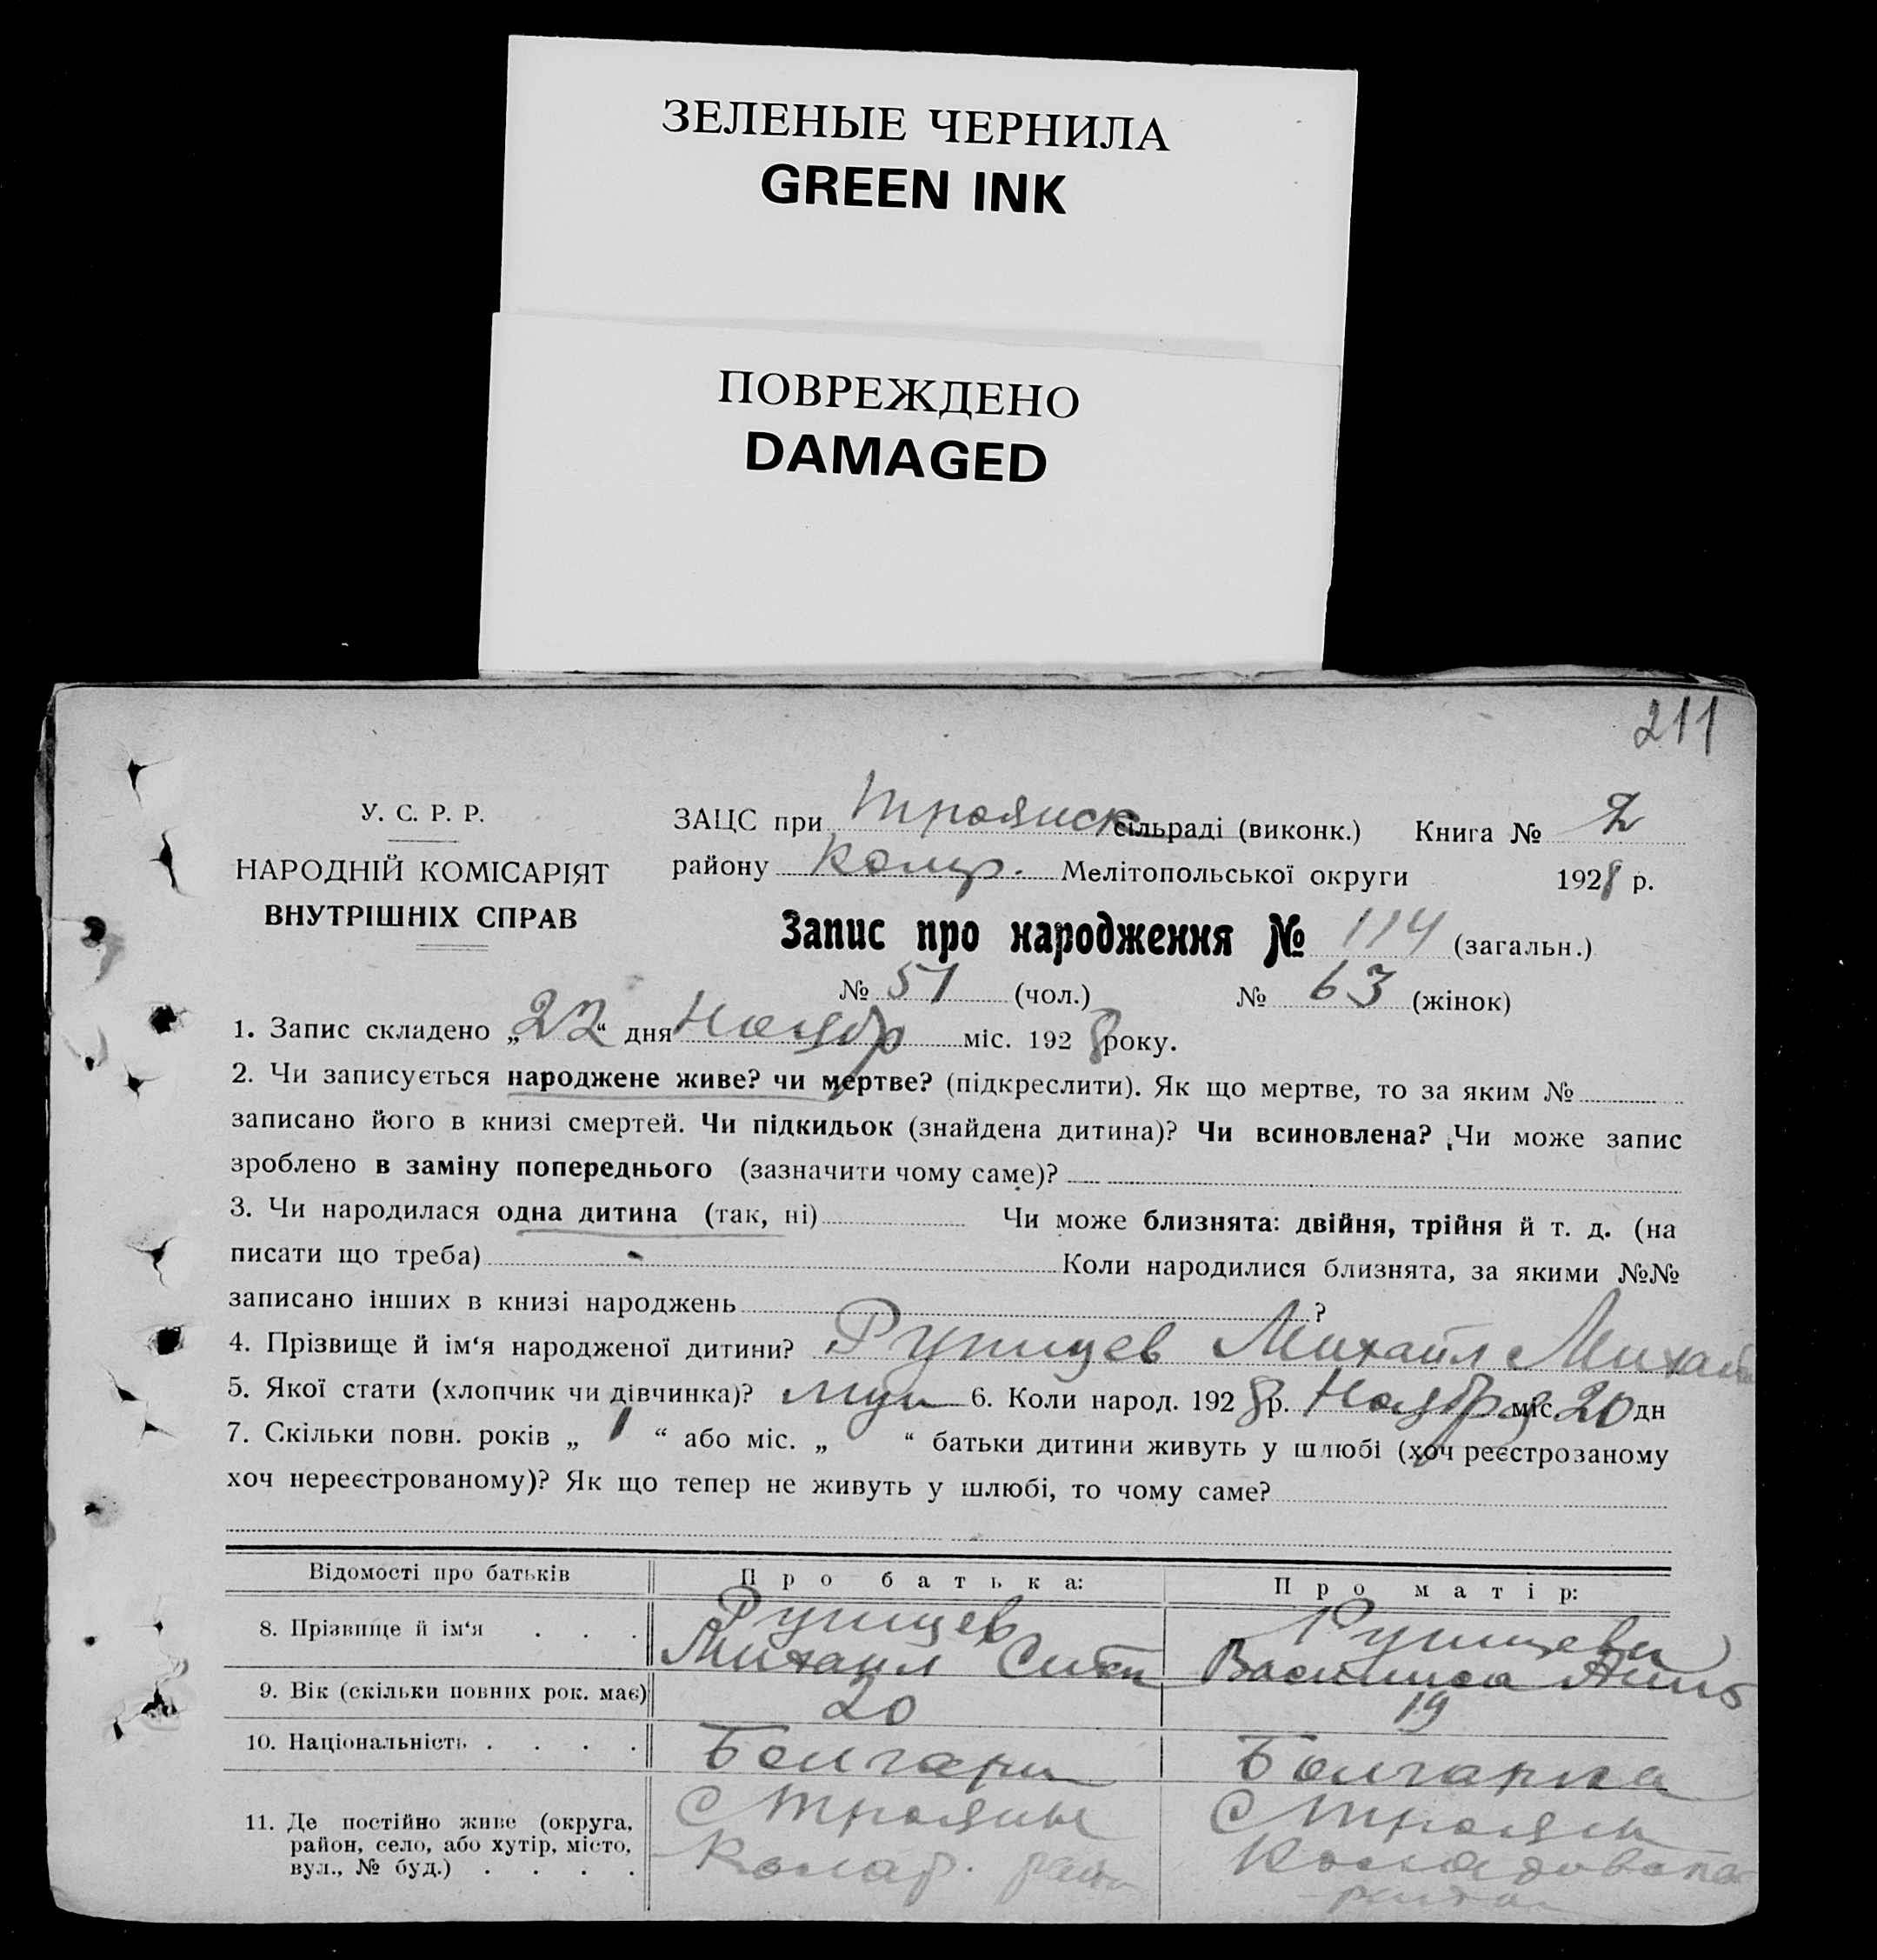 ЗЕЛЕНЫЕ ЧЕРНИЛА
GREEN INK
ПОВРЕЖДЕНО
DAMAGED
211
У. С. Р. Р.
НАРОДНІЙ КОМІСАРІЯТ
ВНУТРІШНІХ СПРАВ
ЗАЦС при Троянск сільраді (виконк.) Книга № 2
району Мелітопольської округи 1928 р.
Запис про народження № 114 (загальн.)
№ 51 (чол.) № 63 (жінок)
1. Запис складено „22“ дня Ноябр міс. 1928 року.
2. Чи записується народжене живе? чи мертве? (підкреслити). Як що мертве, то за яким №
записано його в книзі смертей. Чи підкидьок (знайдена дитина)? Чи всиновлена? Чи може запис
зроблено в заміну попереднього (зазначити чому саме)?
3. Чи народилася одна дитина (так, ні) Чи може близнята: двійня, трійня й т. д. (на
писати що треба) Коли народилися близнята, за якими №№
записано інших в книзі народжень ?
4. Прізвище й ім‘я народженої дитини? Михаил
5. Якої стати (хлопчик чи дівчинка)? муж 6. Коли народ. 1928 р. Ноября міс. 20 дн
7. Скільки повн. років „ 1 “ або міс. „ “ батьки дитини живуть у шлюбі (хоч реєстрозаному
хоч нереєстрованому)? Як що тепер не живуть у шлюбі, то чому саме?
Відомості про батьків Про батька: Про матір:
8. Прізвище й ім‘я . . .
Михаил Василиса
9. Вік (скільки повних рок. має) 20 19
10. Національність . . . . Болгарин Болгарка
11. Де постійно живе (округа, С Трояны С Трояны
район, село, або хутір, місто,
вул., № буд.) . . . .